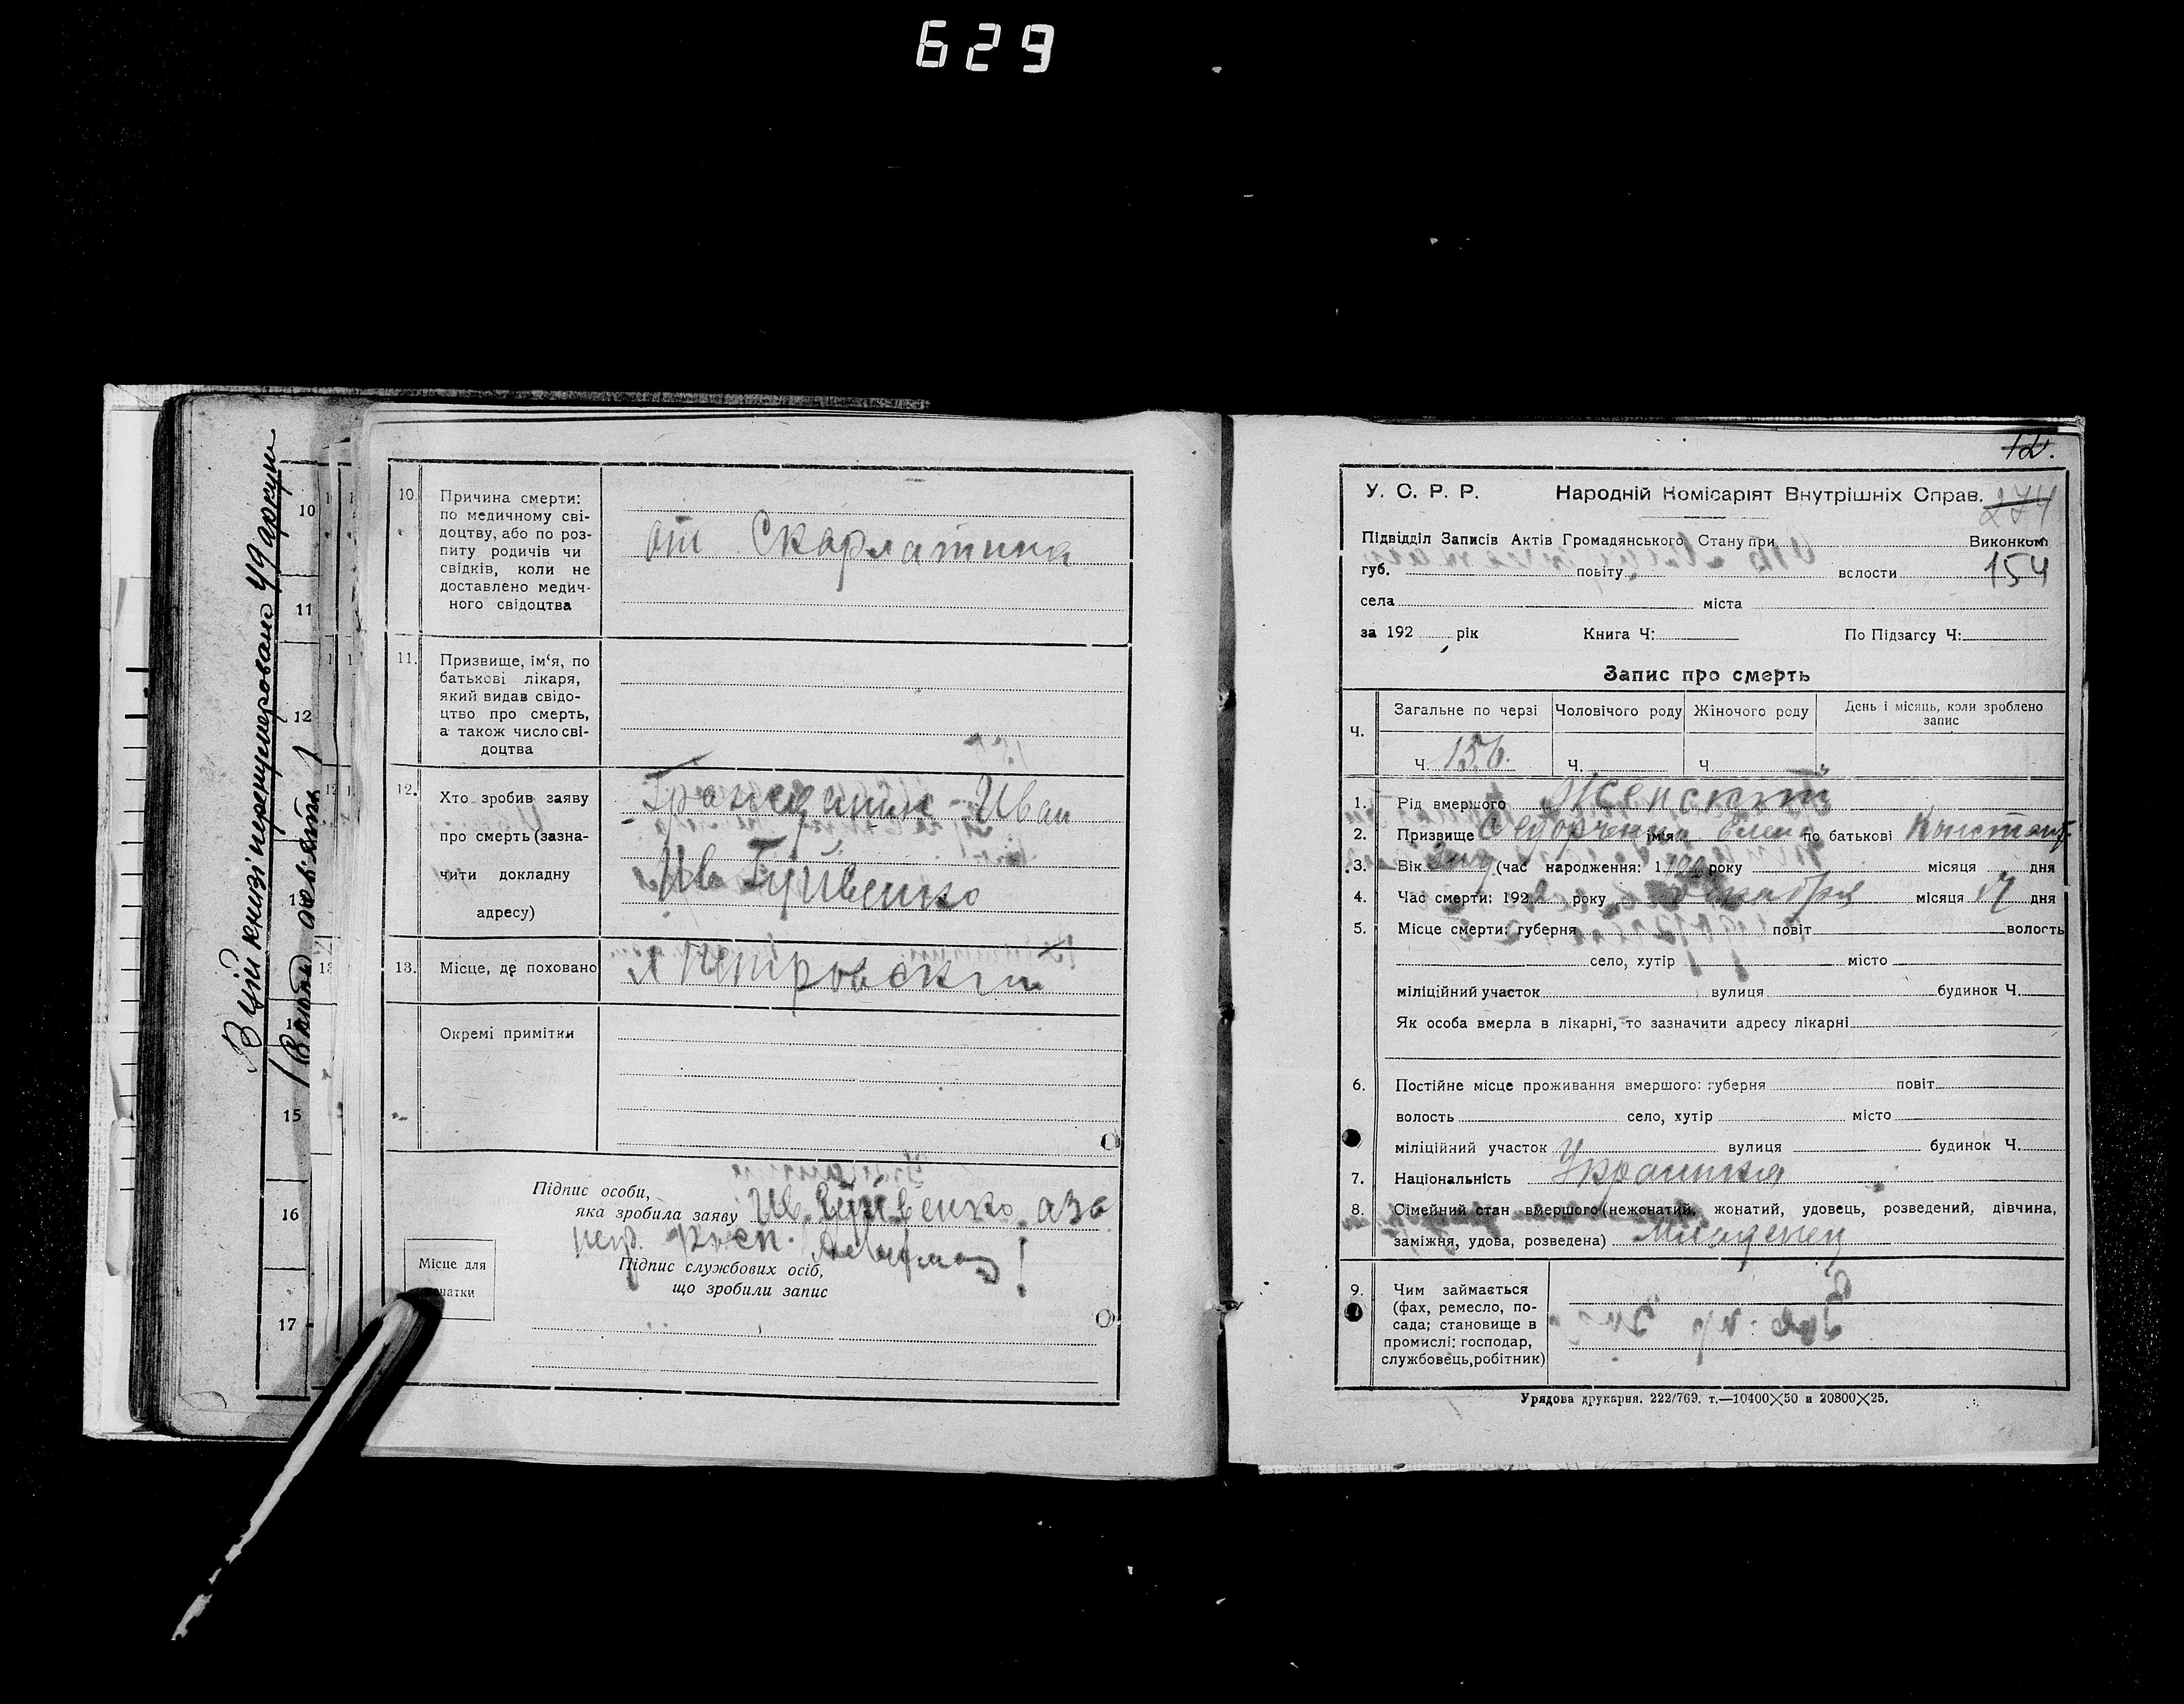 629
В цій книзі перенумеровано 49 аркуш
10
11
12
15
16
17
10. Причина смерти:
по медичному сві-
доцтву, або по роз-
питу родичів чи
свідків, коли не
доставлено медич-
ного свідоцтва
от Скарлатина
11. Призвище, ім'я, по
батькові лікаря,
який видав свідо-
цтво про смерть,
а також число сві-
доцтва
12. Хто зробив заяву
про смерть (зазна-
чити докладну
адресу)
Гражданин Иван
13. Місце, де поховано
Окремі примітки
Підпис особи,
яка зробила заяву
Підпис службових осіб,
що зробили запис
Місце для
12.
У. С. Р. Р. Народній Комісаріят Внутрішніх Справ.
274
Підвідділ Записів Актів Громадянського Стану при Виконком
губ. повіту волости 154
села міста
за 192 рік Книга Ч: По Підзагсу Ч:
Запис про смерть
Ч. Загальне по черзі Чоловічого роду Жіночого роду День і місяць, коли зроблено
запис
Ч. 156. Ч. Ч.
1. Рід вмершого Женский
2. Призвище ім'я по батькові
3. Вік (час народження: 1 року місяця дня
4. Час смерти: 192 року декабря місяця 17 дня
5. Місце смерти: губерня повіт волость
село, хутір місто
міліційний участок вулиця будинок Ч.
Як особа вмерла в лікарні, то зазначити адресу лікарні
6. Постійне місце проживання вмершого: губерня повіт
волость село, хутір місто
міліційний участок вулиця будинок Ч.
7. Національність
8. Сімейний стан вмершого (нежонатий, жонатий, удовець, розведений, дівчина,
заміжня, удова, розведена) Младенец
9. Чим займається
(фах, ремесло, по-
сада; становище в
промислі: господар,
службовець, робітник)
Урядова друкарня. 222/769. т.—10400×50 и 20800×25.